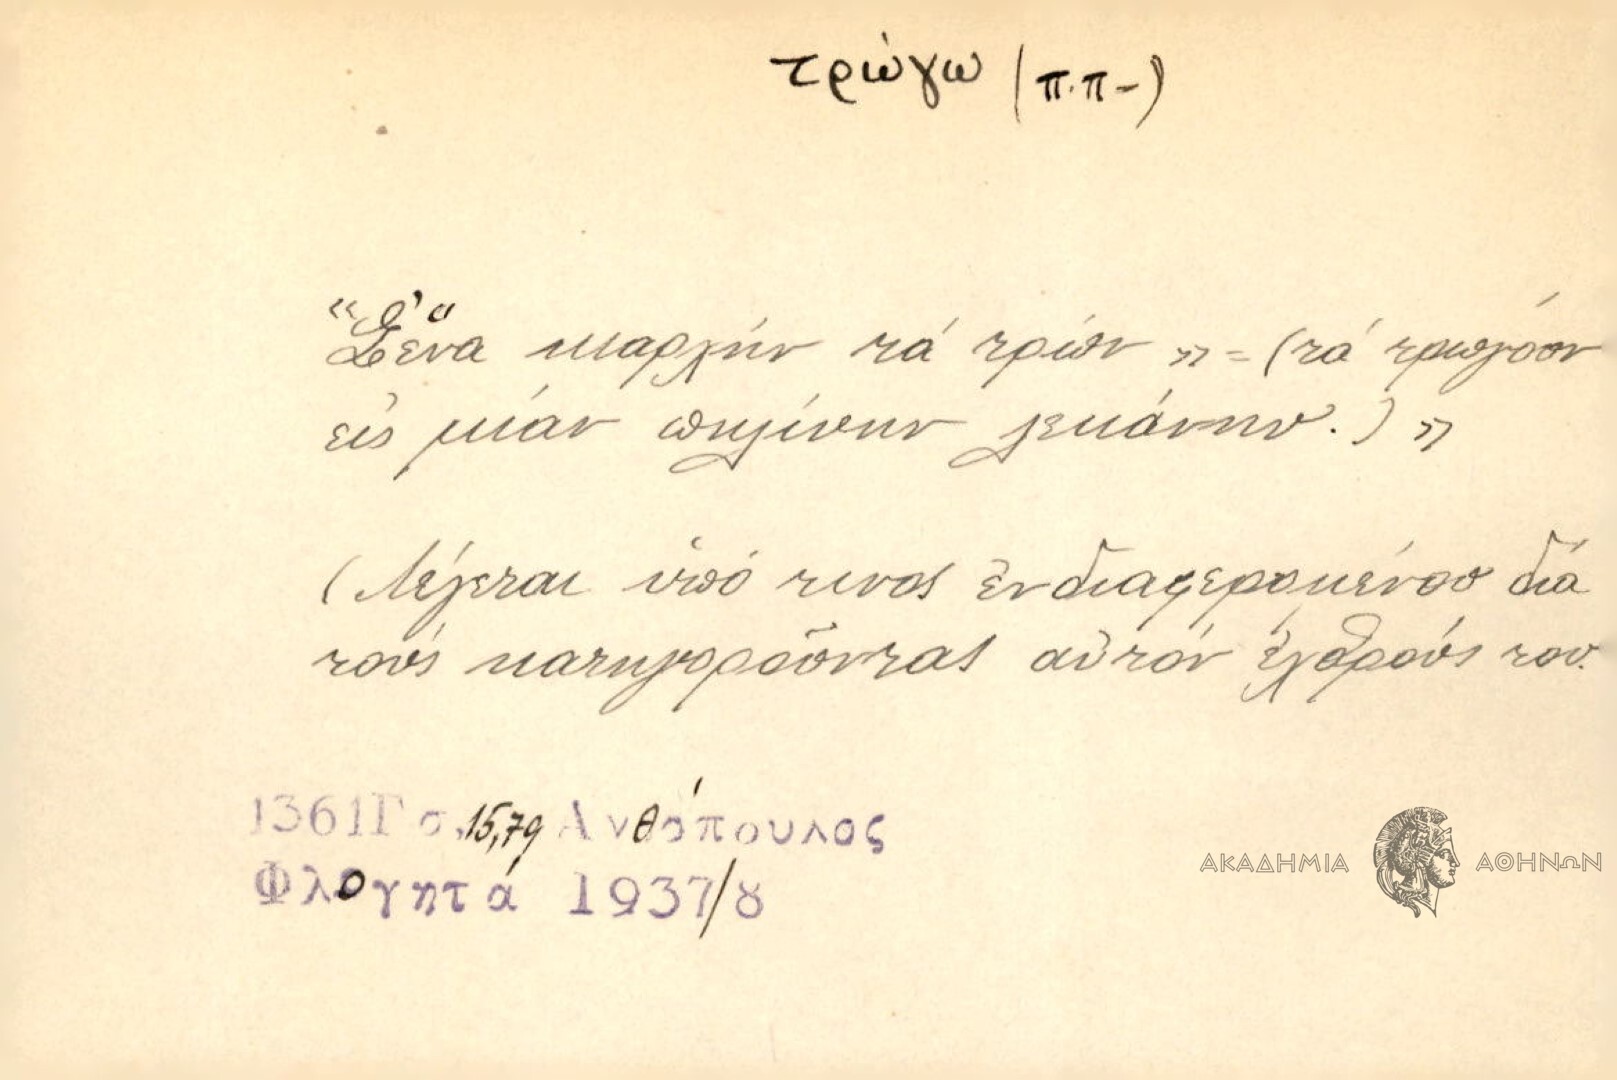 τρώγω (π.π-)
"Σ' ἕνα μαρχήν τά τρών » = (τά τρώγουν
εἰς μίαν πηλίνην λεκάνην.) »
(Λέγεται ὑπό τινος ἐνδιαφερομένου διά
τούς κατηγοροῦντας αὐτόν ἐχθρούς του.
1361Γ σ. 15,79 Ανθόπουλος
Φλογητά 1937/8
ΑΚΑΔΗΜΙΑ ΑΘΗΝΩΝ